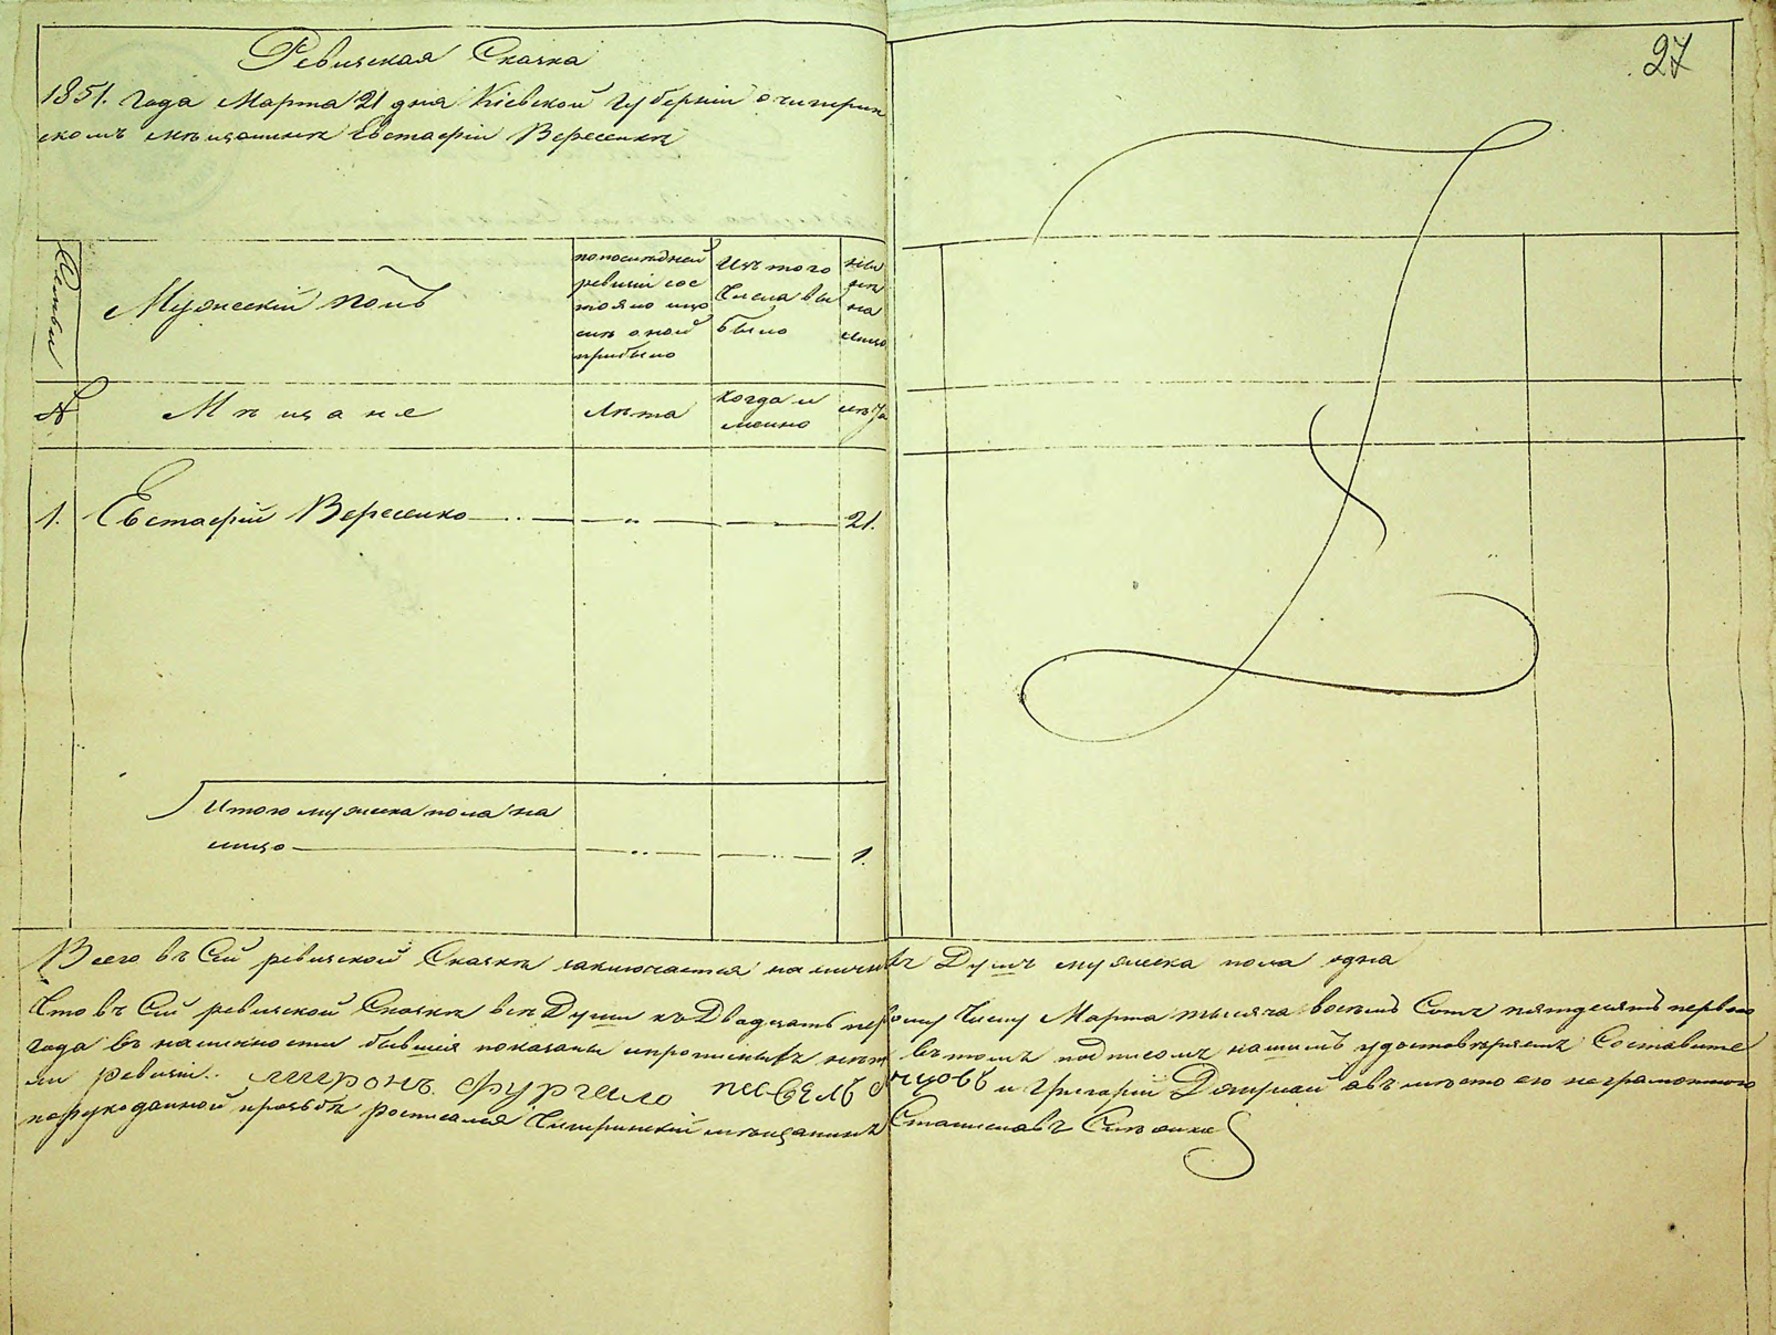 27
Ревизская Сказка
1851. года Марта 21 дня Кіевской Губерніи о чигирин
скомъ мѣщанинѣ Евстафіи Вересенкѣ
Семьи
Мужескій полъ
по последней
ревизіи сос
тояло или
послѣ оной
прибыло
Изъ того
Числа вы
было
ны
нѣ
на
лицо
№
Мѣщане
Лѣта
Когда и
именно
лѣта
1. Евстафій Вересенко 21.
Итого мужеска пола на
лицо 1.
Всего въ Сей ревизской Сказкѣ заключается на личность Душъ мужеска пола одна
Что въ Сей ревизской Сказкѣ всѣ Души къ Двадцать первому Числу Марта тысяча восемь Сотъ пятдесятъ первого
года въ наличности бывшія показаны и прописныхъ нетъ въ томъ подписомъ нашимъ удостовѣряемъ Составите
ли ревизіи. Миронъ Фургало и Григорій а вмѣсто его неграмотного
по рукоданной прозьбѣ росписался Чигринскій мѣщанинъ Станиславъ